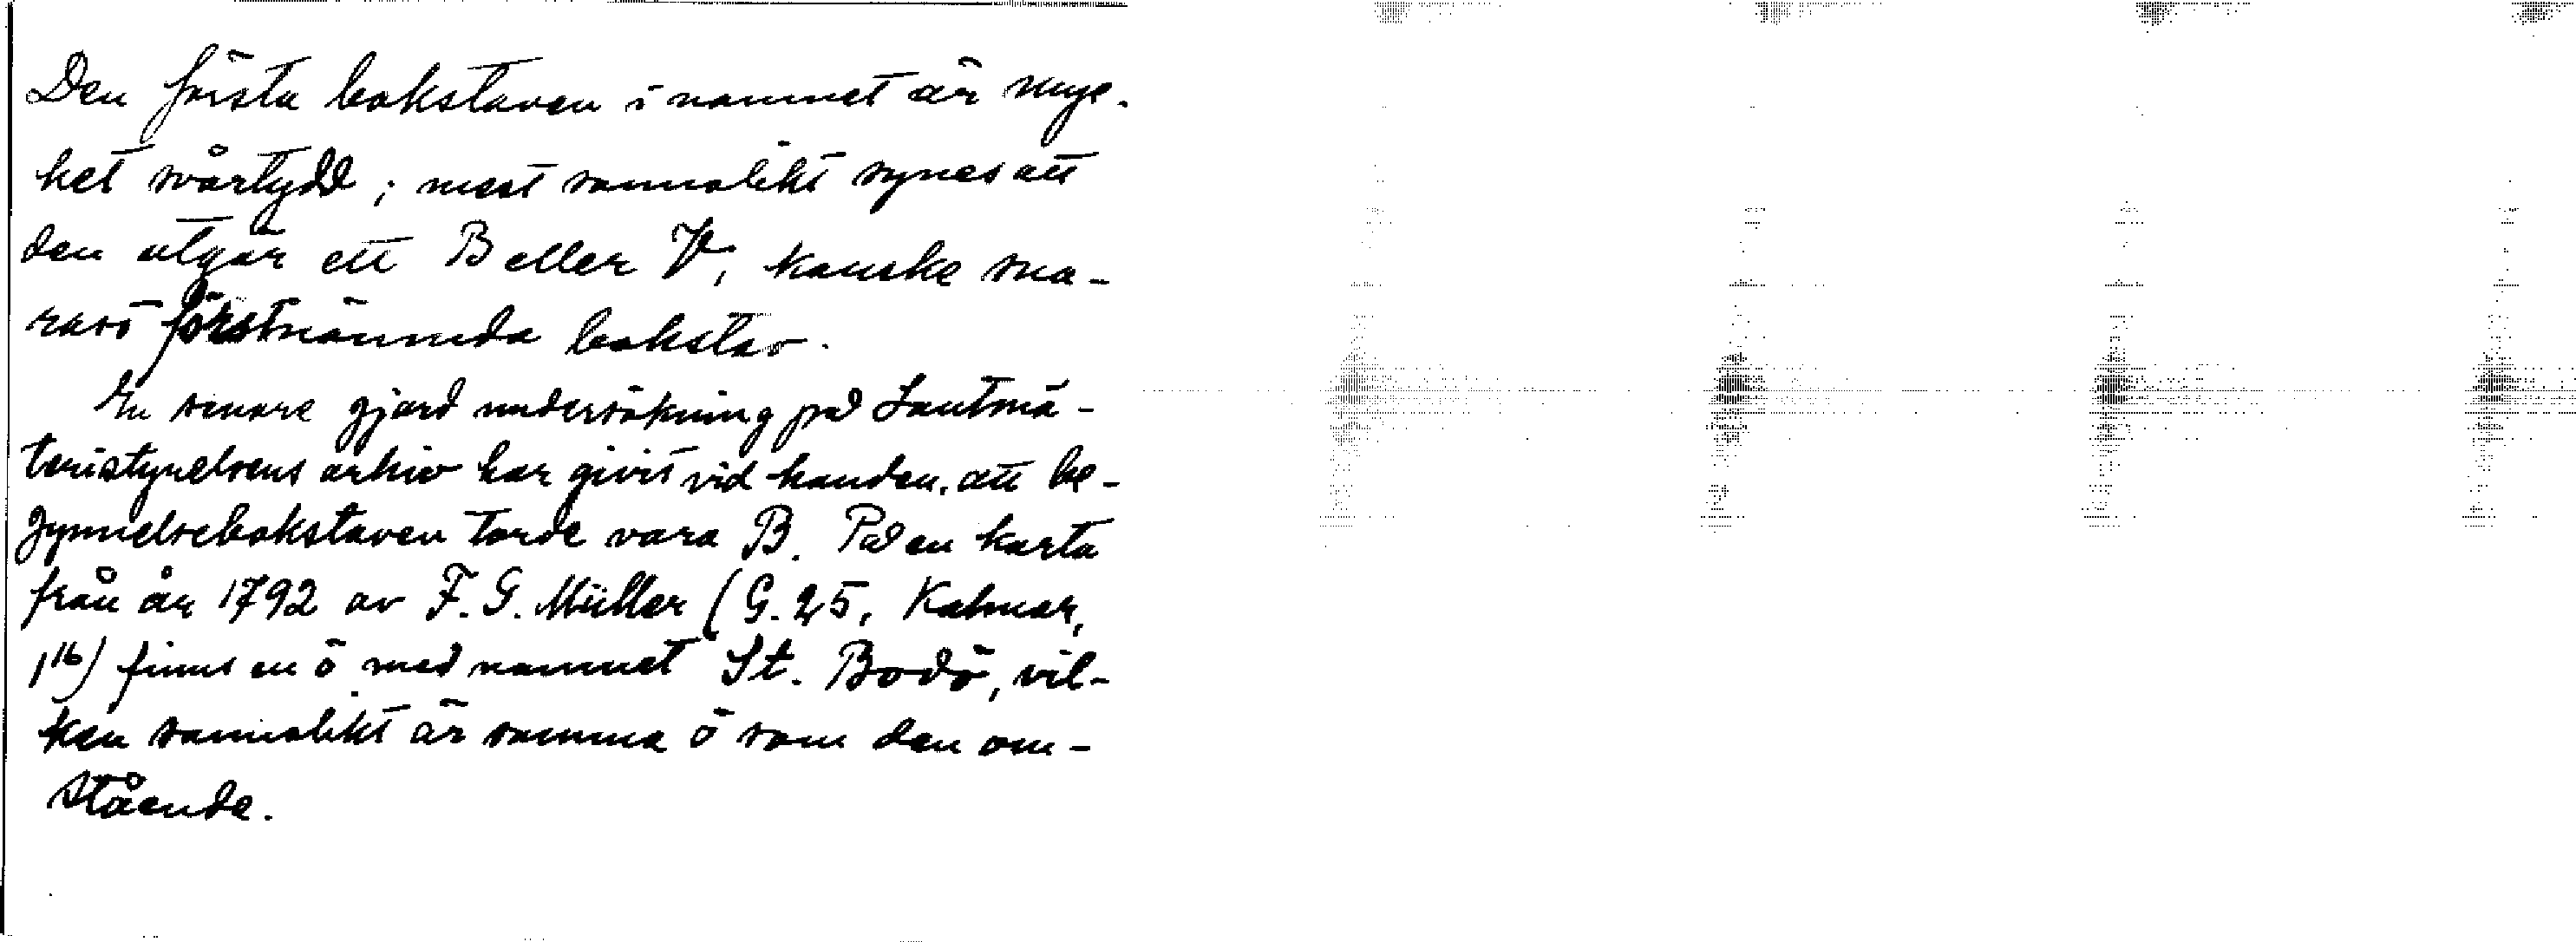 Den första bokstaven i namnet är myc-
ket svårtydd; mest sannolikt synes att
den utgör ett B eller V, kanske sna-
rast förstnämnda bokstav.
En senare gjord undersökning på Lantmä-
teristyrelsens arkiv har givit vid handen, att be-
gynnelsebokstaven torde vara B. På en karta
från år 1792 av F. G. Müller (G. 25, Kalmar,
1¹⁶) finns en ö med namnet St. Bodö, vil-
ken sannolikt är samma ö som den om-
stående.